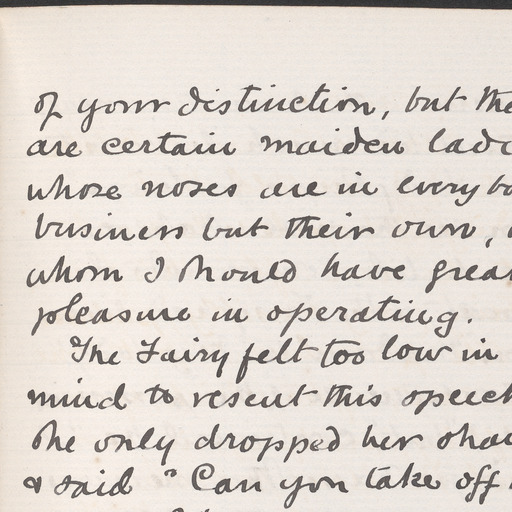 of your distinction, but the
are certain maiden lad
whose noses are in every bo
business but their own,
whom I should have grea
pleasure in operating.
The Fairy felt too low in
mind to resent this speech
she only dropped her sha
& said "Can you take off